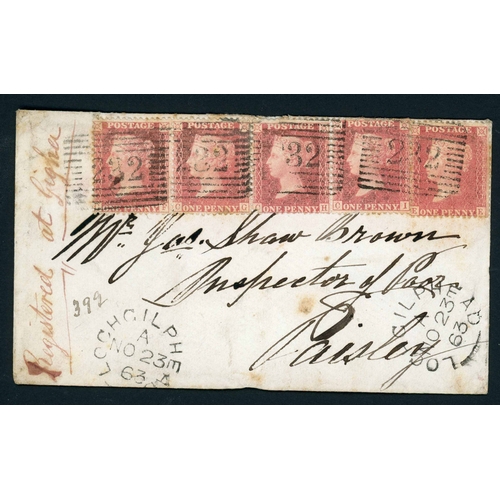 Registered at Lighn
POSTAGE POSTAGE POSTAGE POSTAGE POSTAGE
232 32 32 2 2
ONE PENNY ONE PENNY ONE PENNY ONE PENNY ONE PENNY
Mr. Jas. Shaw Brown
Inspector of Poor
Paisley
392
LOCHGILPHEAD
A
NO 23
63
LOCHGILPHEAD
NO 23
63